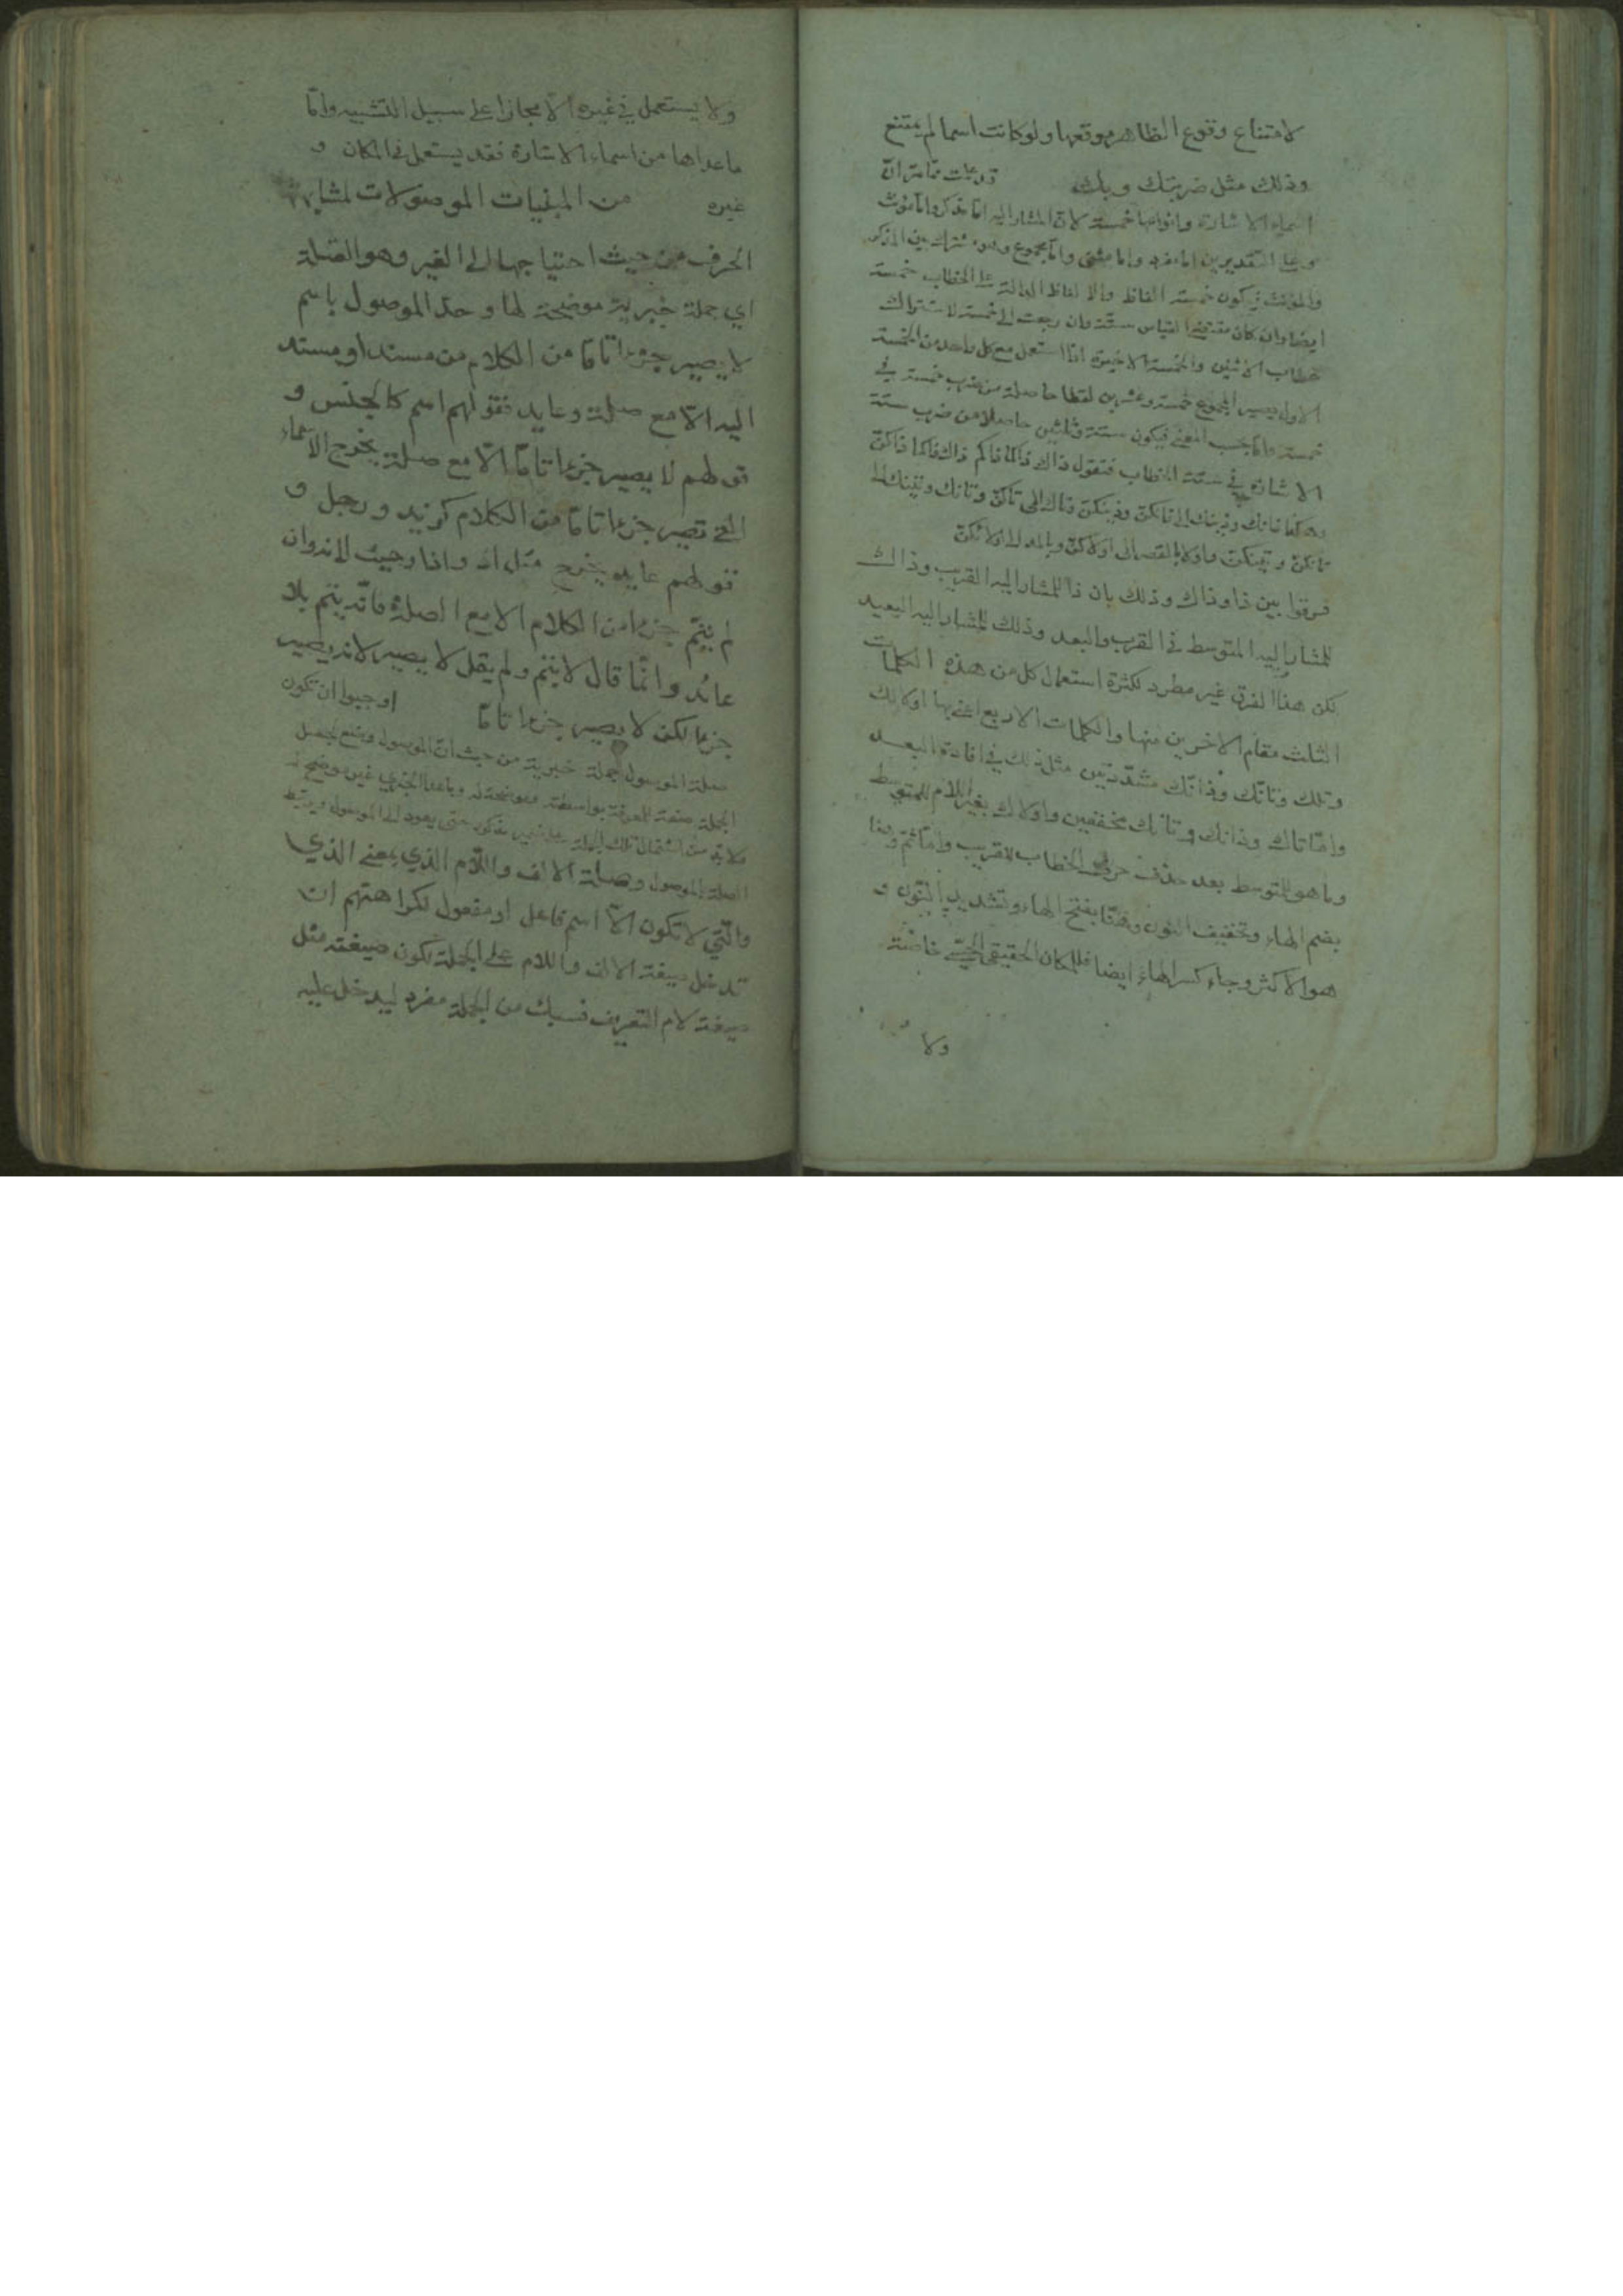 لامتناع وقوع الظاهر موقعها ولو كانت اسما لم يمتنع
وذلك مثل ضربتك وبك قد علمت مما مر ان
اسماء الاشارة وانواعها خمسة لان المشار اليه اما مذكر واما مؤنث
وعلى التقديرين اما مفرد واما مثنى واما مجموع وهو مشترك بين المذكر
والمؤنث فيكون خمسة الفاظ والالفاظ الدالة على الخطاب خمسة
ايضا وان كان مقتضى القياس ستة وان رجعت الى خمسة لاشتراك
خطاب الاثنين والخمسة الاخيرة اذا استعمل مع كل واحد من الخمسة
الاول يصير المجموع خمسة وعشرين لفظا حاصلة من ضرب خمسة في
خمسة واما بحسب المعنى فيكون ستة وثلثين حاصلا من ضرب ستة
الاشارة في ستة الخطاب فتقول ذاك ذاكما ذاكم ذاك ذاكما ذاكن
وهكذا ذانك وذينك الى ذانكن وذينكن وتاك الى تاكن وتانك وتينك الى
تانكن وتينكن واولا بالقصر الى اولاكن وبالمد الى اولائكن
فرقوا بين ذا وذاك وذلك بان ذا للمشار اليه القريب وذاك
للمشار اليه المتوسط في القرب والبعد وذلك للمشار اليه البعيد
لكن هذا الفرق غير مطرد لكثرة استعمال كل من هذه الكلمات
الثلث مقام الاخرين منها والكلمات الاربع اعني بها اولالك
وتلك وتانّك وذانّك مشددتين مثل ذلك في افادة البعد
واما تاك وذانك وتانك مخففين واولاك بغير اللام للمتوسط
وما هو للمتوسط بعد حذف حرف الخطاب للقريب واما ثم وهنا
بضم الهاء وتخفيف النون وهنّا بفتح الهاء وتشديد النون و
هو الاكثر وجاء كسر الهاء ايضا فللمكان الحقيقي الحسي خاصة
ولا
ولا يستعمل في غيره الا مجازا على سبيل التشبيه واما
ما عداها من اسماء الاشارة فقد يستعمل في المكان و
غيره من المبنيات الموصولات لمشابهة
الحرف من حيث احتياجها الى الغير وهو الصلة
اي جملة خبرية موضحة لها وحد الموصول باسم
لا يصير جزءا تاما من الكلام من مسند او مسند
اليه الا مع صلة وعايد فقولهم اسم كالجنس و
قولهم لا يصير جزءا تاما الا مع صلة يخرج الاسماء
التي تصير جزءا تاما من الكلام كزيد ورجل و
قولهم عايد يخرج مثل اذ واذا وحيث لانه وان
لم يتم جزءا من الكلام الا مع الصلة فانه يتم بلا
عائد وانما قال لا يتم ولم يقل لا يصير لانه يصير
جزءا لكن لا يصير جزءا تاما اوجبوا ان تكون
صلة الموصول جملة خبرية من حيث ان الموصول وضع لجعل
الجملة صفة للمعرفة بواسطة وموضحة له وما عدا الخبري غير موضح له
ولا بد من اشتمال تلك الجملة على ضمير مذكور حتى يعود الى الموصول ويرتبط
الصلة بالموصول وصلة الالف واللام الذي بمعنى الذي
والتي لا تكون الا اسم فاعل او مفعول لكراهتهم ان
تدخل صيغة الالف واللام على الجملة لكون صيغته مثل
صيغة لام التعريف فسبك من الجملة مفرد ليدخل عليه